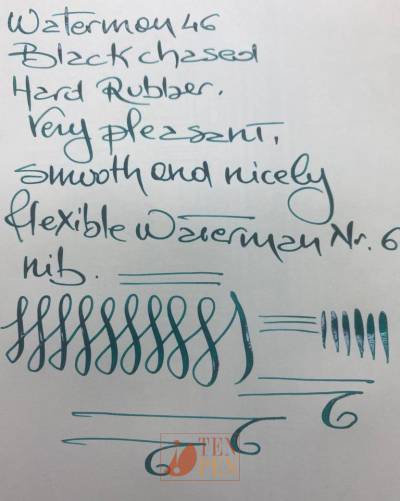 Waterman 46
Black chased
Hard Rubber.
Very pleasant,
smooth and nicely
flexible Waterman Nr. 6
nib.
TEN
PEN